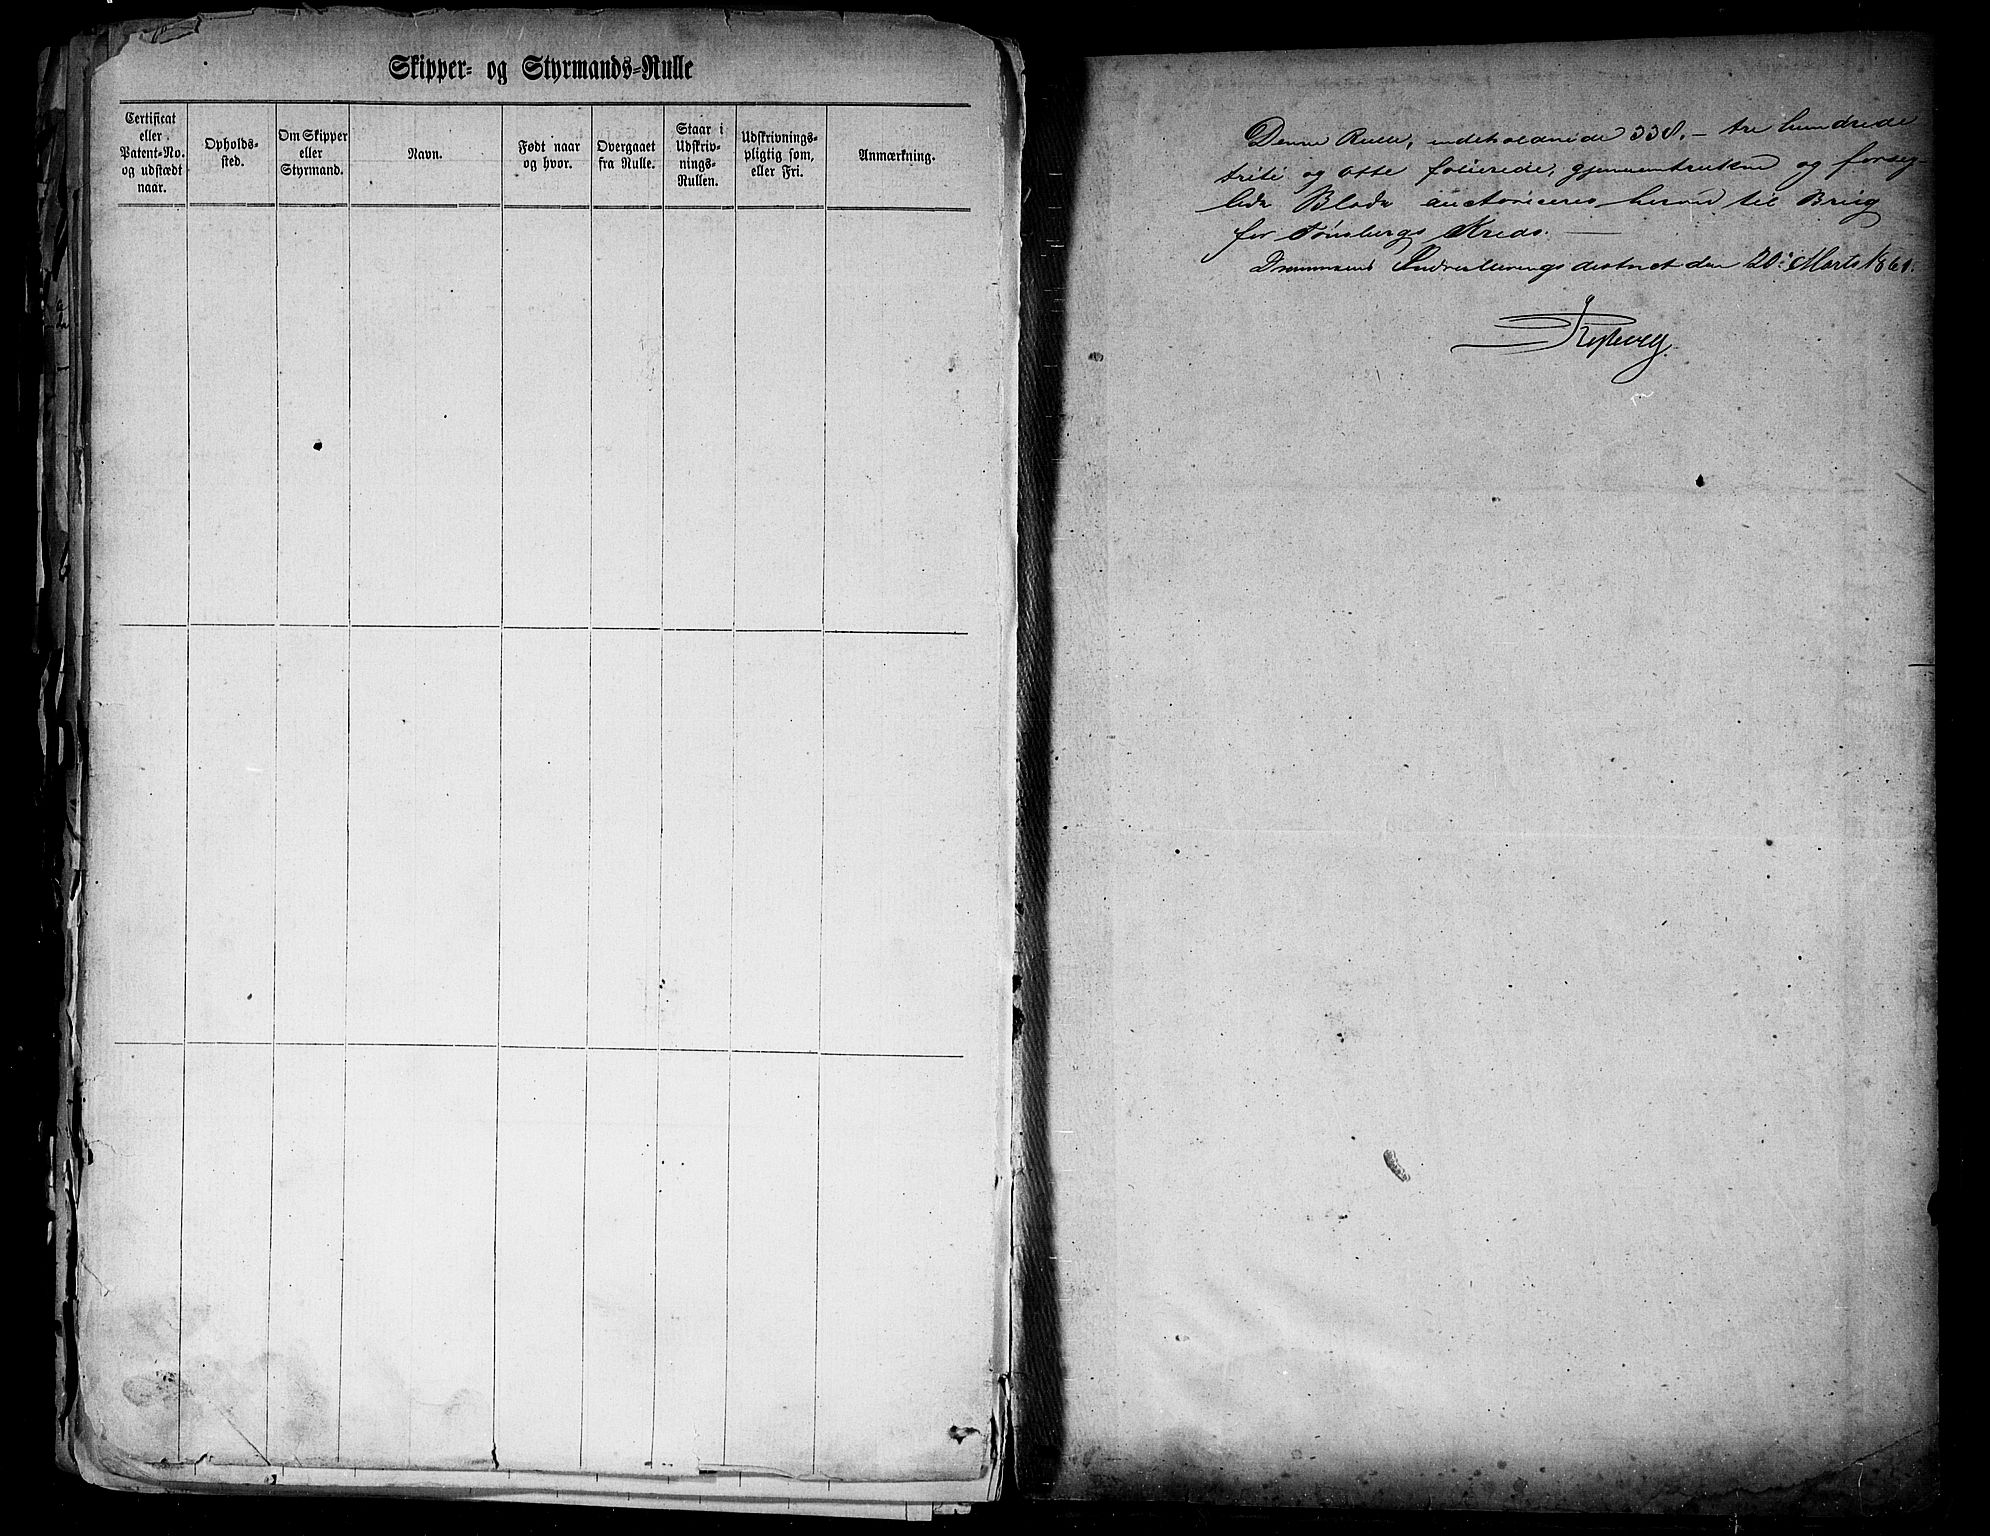 Skipper- og Styrmands-Rulle
Certificat
eller
Patent-No.
og udstædt
naar.
Opholds-
sted.
Om Skipper
eller
Styrmand.
Navn.
Født naar
og hvor.
Overgaaet
fra Rulle.
Staar i
Udskriv-
nings-
Rullen.
Udskrivnings-
pligtig som,
eller Fri.
Anmærkning.
Denne Rulle, indeholdende 338. - tre hundrede
treti og otte folierede, gjennemtrukne og forseg-
lede Blade auctoriceres herved til Brug
for Tønsbergs Kreds.
Drammens Indrulleringsdistrict den 20. Marts 1861.